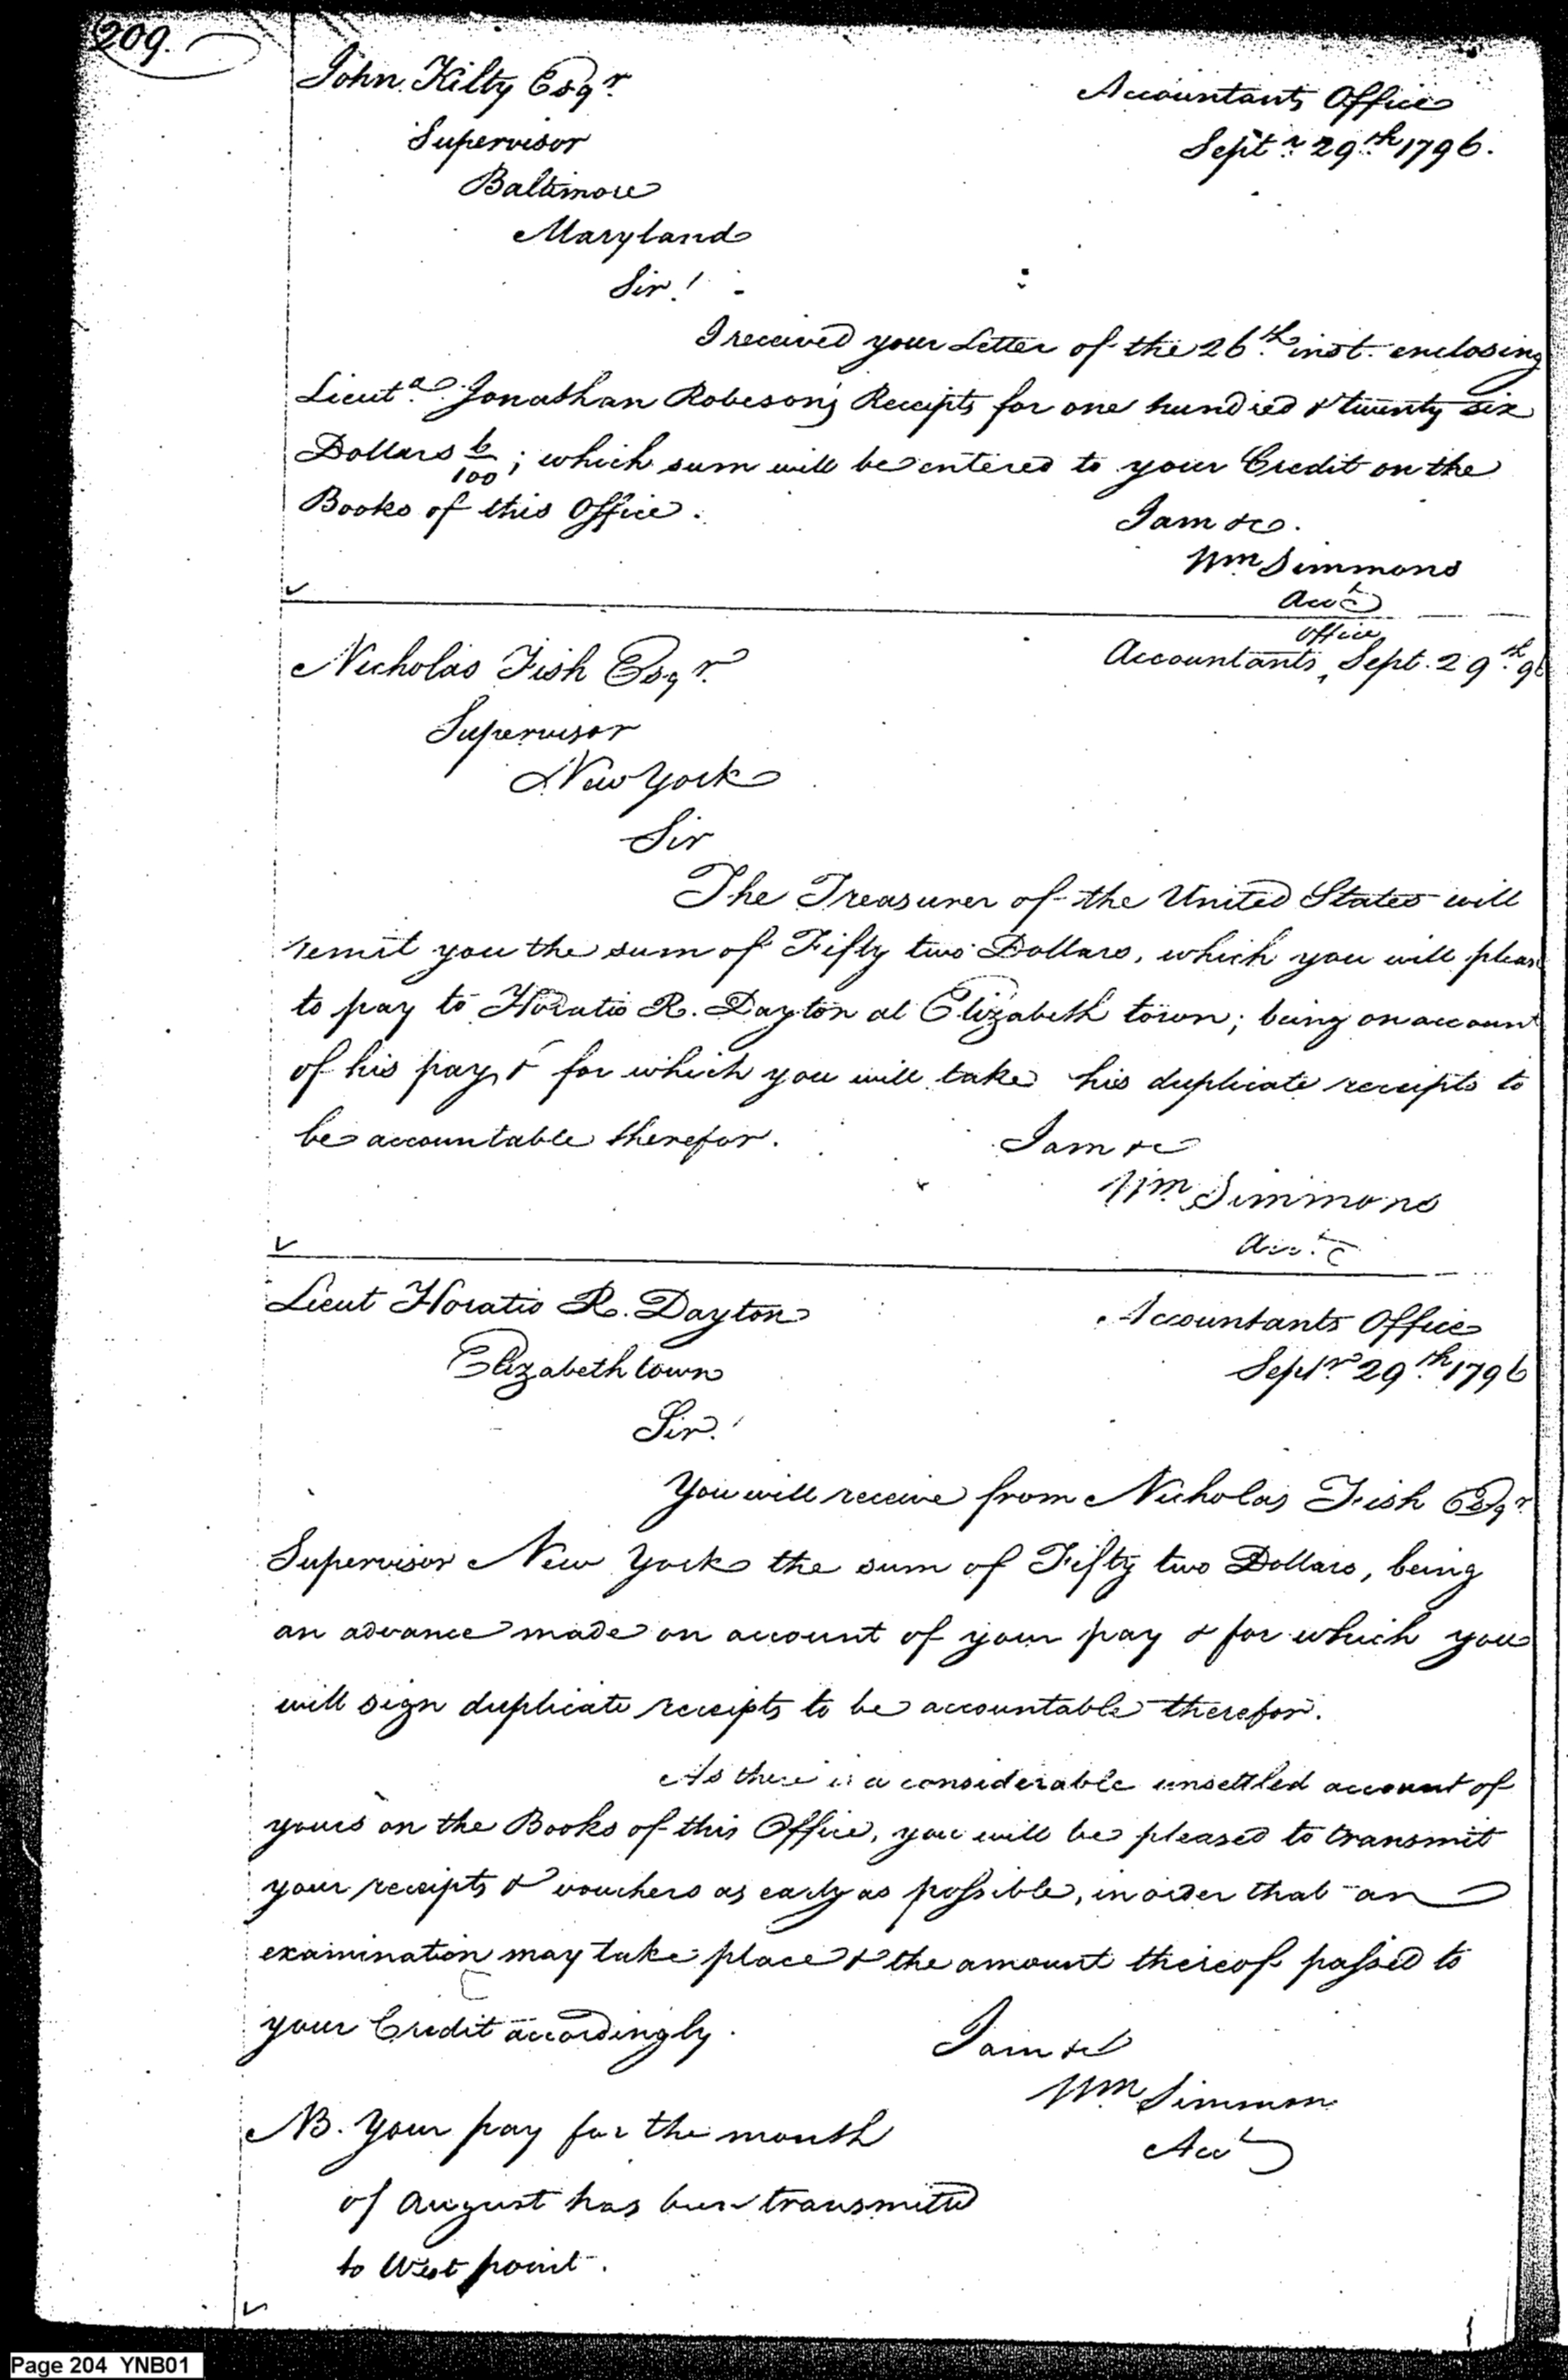 209.
John Kilty Esqr.
Accountants Office
Septr. 29th. 1796.
Supervisor
Baltimore
Maryland
Sir!
I received your Letter of the 26th. inst. enclosing
Lieut. Jonathan Robeson's Receipts for one hundred & twenty six
Dollars 6/100; which sum will be entered to your Credit on the
Books of this Office.
I am &c.
Wm Simmons
Acct
Nicholas Fish Esqr.
office
Accountants, Sept. 29th. 96
Supervisor
New York
Sir
The Treasurer of the United States will
remit you the sum of Fifty two Dollars, which you will please
to pay to Horatio R. Dayton at Elizabeth town; being on account
of his pay & for which you will take his duplicate receipts to
be accountable therefor.
I am &c
Wm. Simmons
Acct.
Lieut Horatio R. Dayton
Accountants Office
Septr. 29th. 1796
Elizabeth town
Sir!
You will receive from Nicholas Fish Esqr.
Supervisor New York the sum of Fifty two Dollars, being
an advance made on account of your pay & for which you
will sign duplicate receipts to be accountable therefor.
As there is a considerable unsettled account of
yours on the Books of this Office, you will be pleased to transmit
your receipts & vouchers as early as possible, in order that an
examination may take place & the amount thereof passed to
your Credit accordingly.
I am &c
Wm Simmon
Acct
NB. Your pay for the month
of August has been transmitted
to West point.
Page 204 YNB01